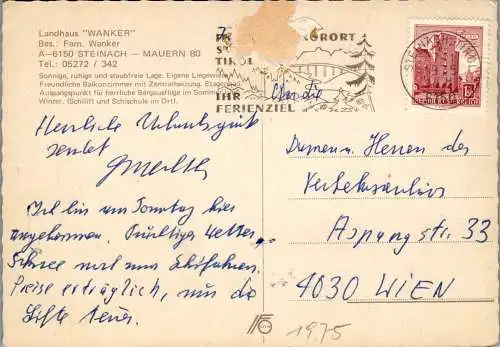 Landhaus "WANKER"
Bes.: Fam. Wanker
A-6150 STEINACH – MAUERN 80
Tel.: 05272 / 342
Sonnige, ruhige und staubfreie Lage. Eigene Liegewiese
Freundliche Balkonzimmer mit Zentralheizung, Etagen
Ausgangspunkt für herrliche Bergausflüge im Sommer
Winter. (Schilift und Schischule im Ort).
KURORT
TIROL
IHR
FERIENZIEL
STEINACH TIROL
REPUBLIK ÖSTERREICH
An die
Herzliche Urlaubsgrüße
sendet
Ich bin am Sonntag hier
angekommen. Wetter,
Schnee und zum Skifahren.
Preise erträglich, nur die
Lifte teuer.
Damen und Herren der
Verkehrs
Aspangstr. 33
1030 WIEN
1975